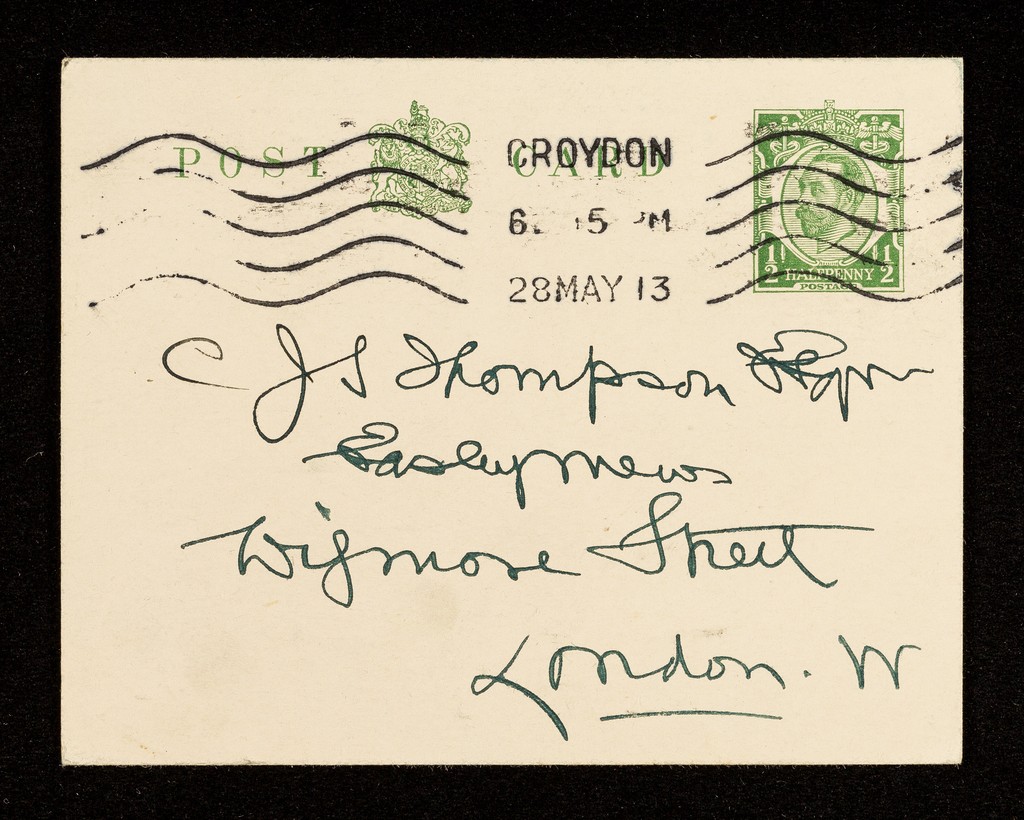 POST CARD
CROYDON
6. 15 PM
28MAY 13
1/2 HALFPENNY 1/2
POSTAGE
C J S Thompson Esqre
Easleymews
Wigmore Street
London. W